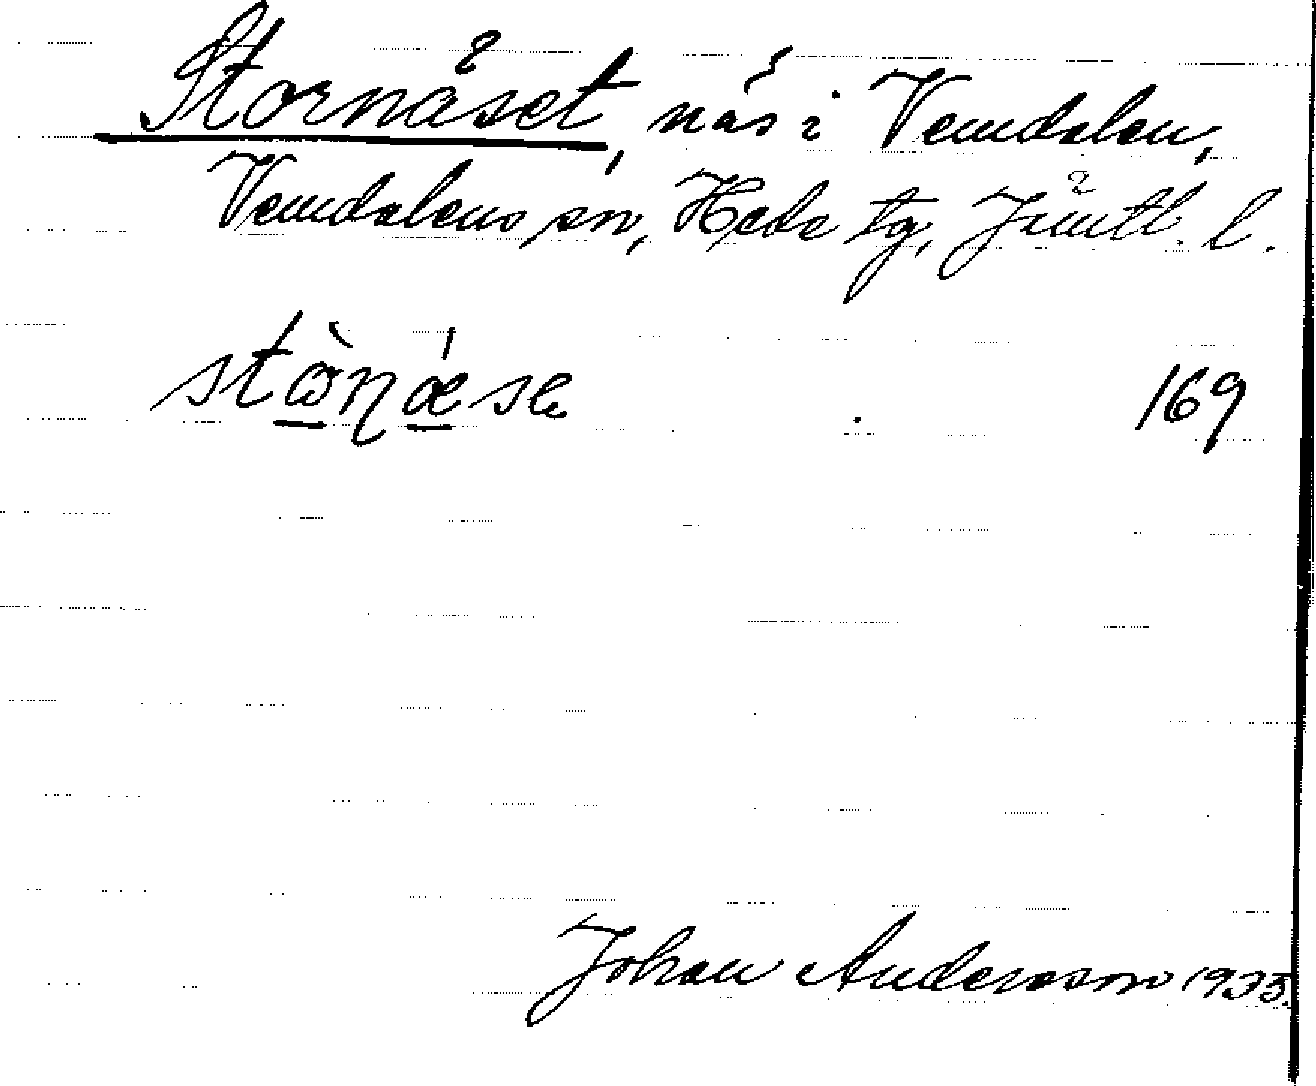 Stornäset, näs i Vemdalen,
Vemdalens sn, Hede tg, Jämtl. l.
stὼn̦ǽse 169
Johan Andersson 1935.